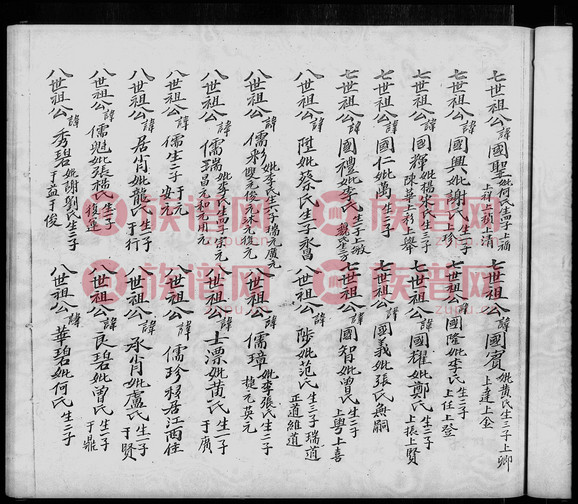 七世祖公諱國聖妣何氏生四子上福
上祥上禎上清
七世祖公諱國賓妣黃氏生三子上卿
上達上金
七世祖公諱國興妣謝氏生一子上珍
七世祖公諱國隆妣李氏生二子
上任上登
七世祖公諱國輝妣楊宋氏生三子
上舉
七世祖公諱國耀妣鄭氏生二子
上振上賢
七世祖公諱國仁妣萬氏生三子
七世祖公諱國義妣張氏無嗣
七世祖公諱國禮妣李氏生子上敏
七世祖公諱國智妣曾氏生二子
上粵上喜
八世祖公諱陞妣蔡氏生子永昌
八世祖公諱陟妣范氏生三子瑞道
正道維道
八世祖公諱儒彩妣李氏生子瑞元廣元
八世祖公諱儒璋妣李張氏生二子
捷元英元
八世祖公諱儒瑞妣李氏生四子宗元
昌元和元用元
八世祖公諱士漂妣黃氏生一子
于廣
八世祖公諱儒生二子于元
八世祖公諱儒珍移居江西住
八世祖公諱居肖妣龍氏生子
于行
八世祖公諱承肖妣盧氏生一子
于賢
八世祖公諱儒魁妣張楊氏生子
復運
八世祖公諱良碧妣曾氏生一子
于鼎
八世祖公諱秀碧妣謝劉氏生二子
于益于俊
八世祖公諱華碧妣何氏生二子
族谱网
zupu.cn